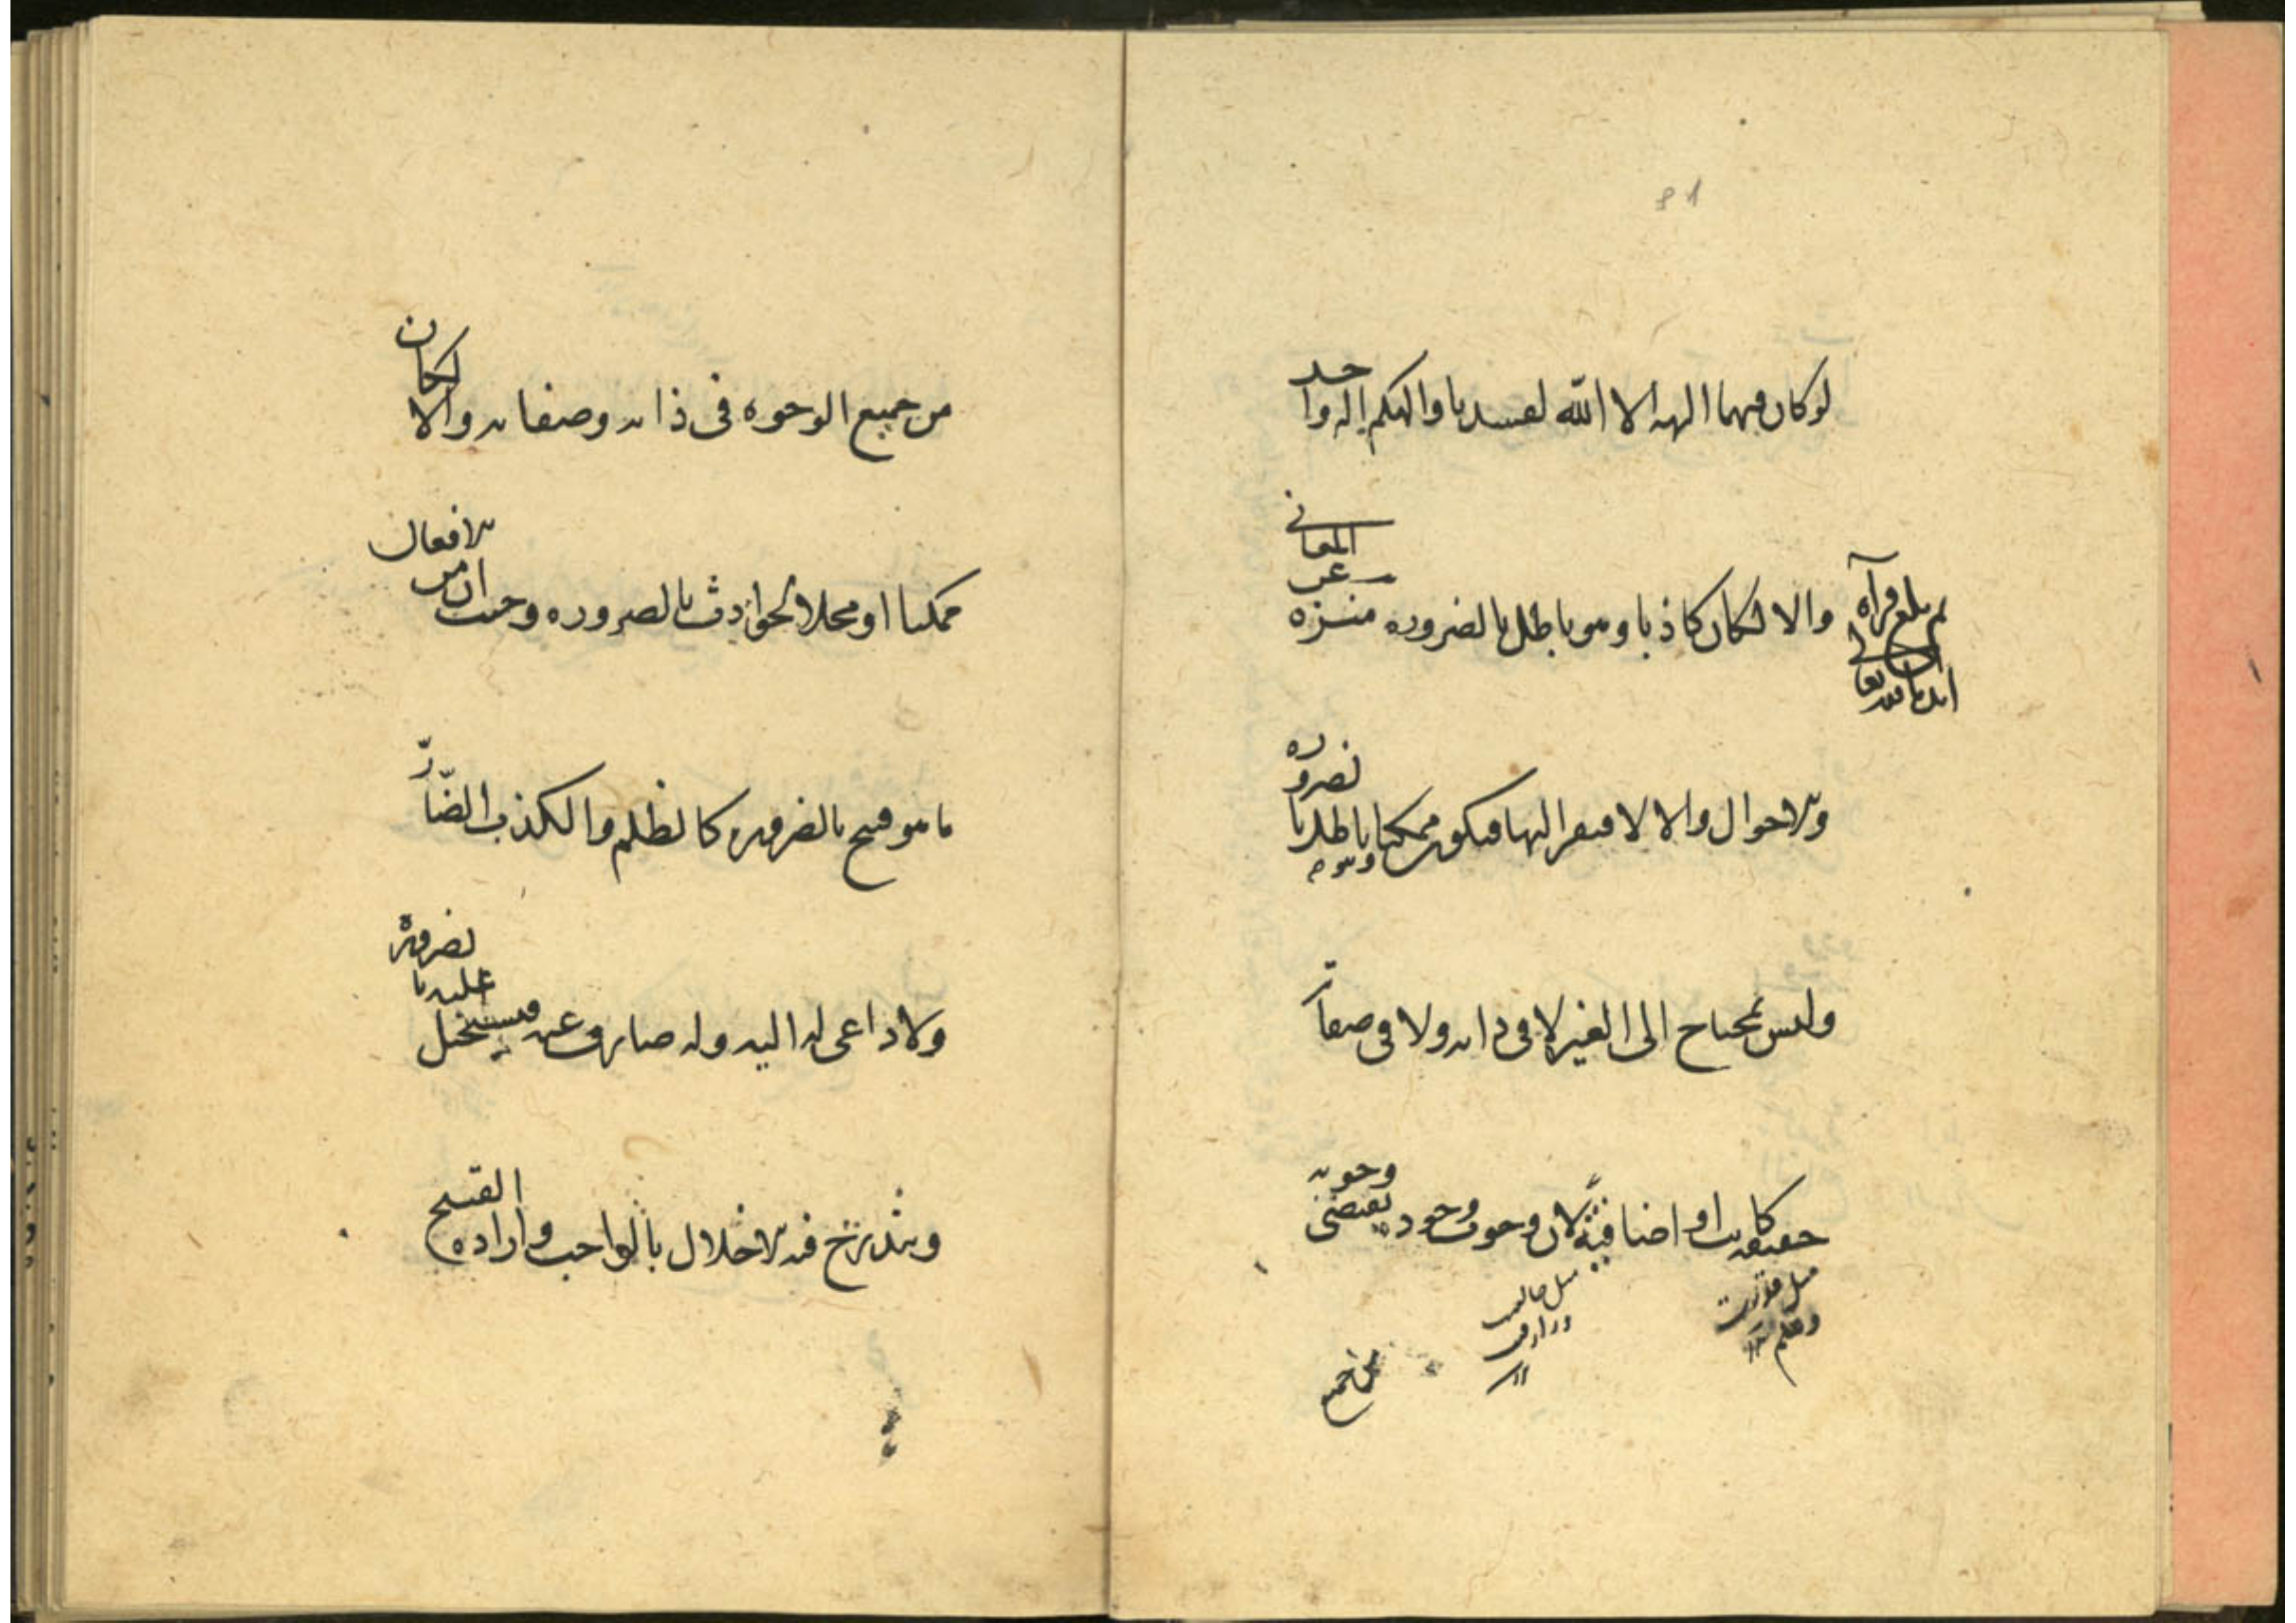 لو كان فيهما الهة الا الله لفسدتا والهكم اله واحد
والا لكان كاذبا وهو باطل بالضرورة منزه عن المعاني
والاحوال والا لافتقر اليها فيكون ممكنا وهو باطل بالضرورة
وليس بمحتاج الى الغير لا في ذاته ولا في صفاته
حقيقية كانت او اضافية لان وجوب وجوده يقتضى وجوبه
مثل قدرت
وعلم
من جميع
من جميع الوجوه فى ذاته وصفاته والا لكان
ممكنا او محلا لحوادث بالضرورة وحيث ان من الافعال
ما هو قبيح بالضرورة كالظلم والكذب الضار
ولا داعى له اليه وله صارف عنه فيستحيل عليه بالضرورة
ويندرج فيه الاخلال بالواجب وارادة القبيح